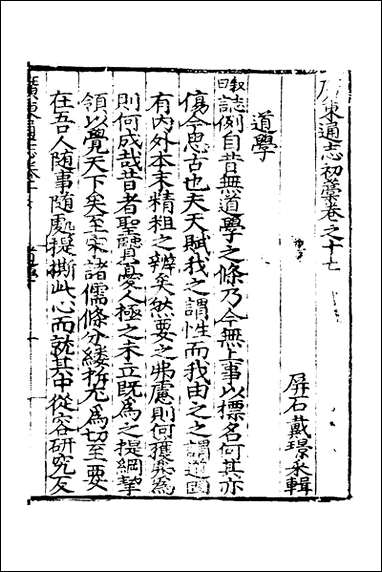 廣東通志初藁卷之十七
屏石戴璟采輯
道學
叙曰誌例自昔無道學之條乃今無上事以標名何其亦
傷今思古也夫天賦我之謂性而我由之之謂道固
有內外本末精粗之辨矣然要之弗慮則何獲弗爲
則何成哉昔者聖賢真憂人極之未立既爲之提綱挈
領以覺天下矣至宋諸儒條分縷析尤爲切至要
在吾人随事随處提撕此心而就其中從容研究反